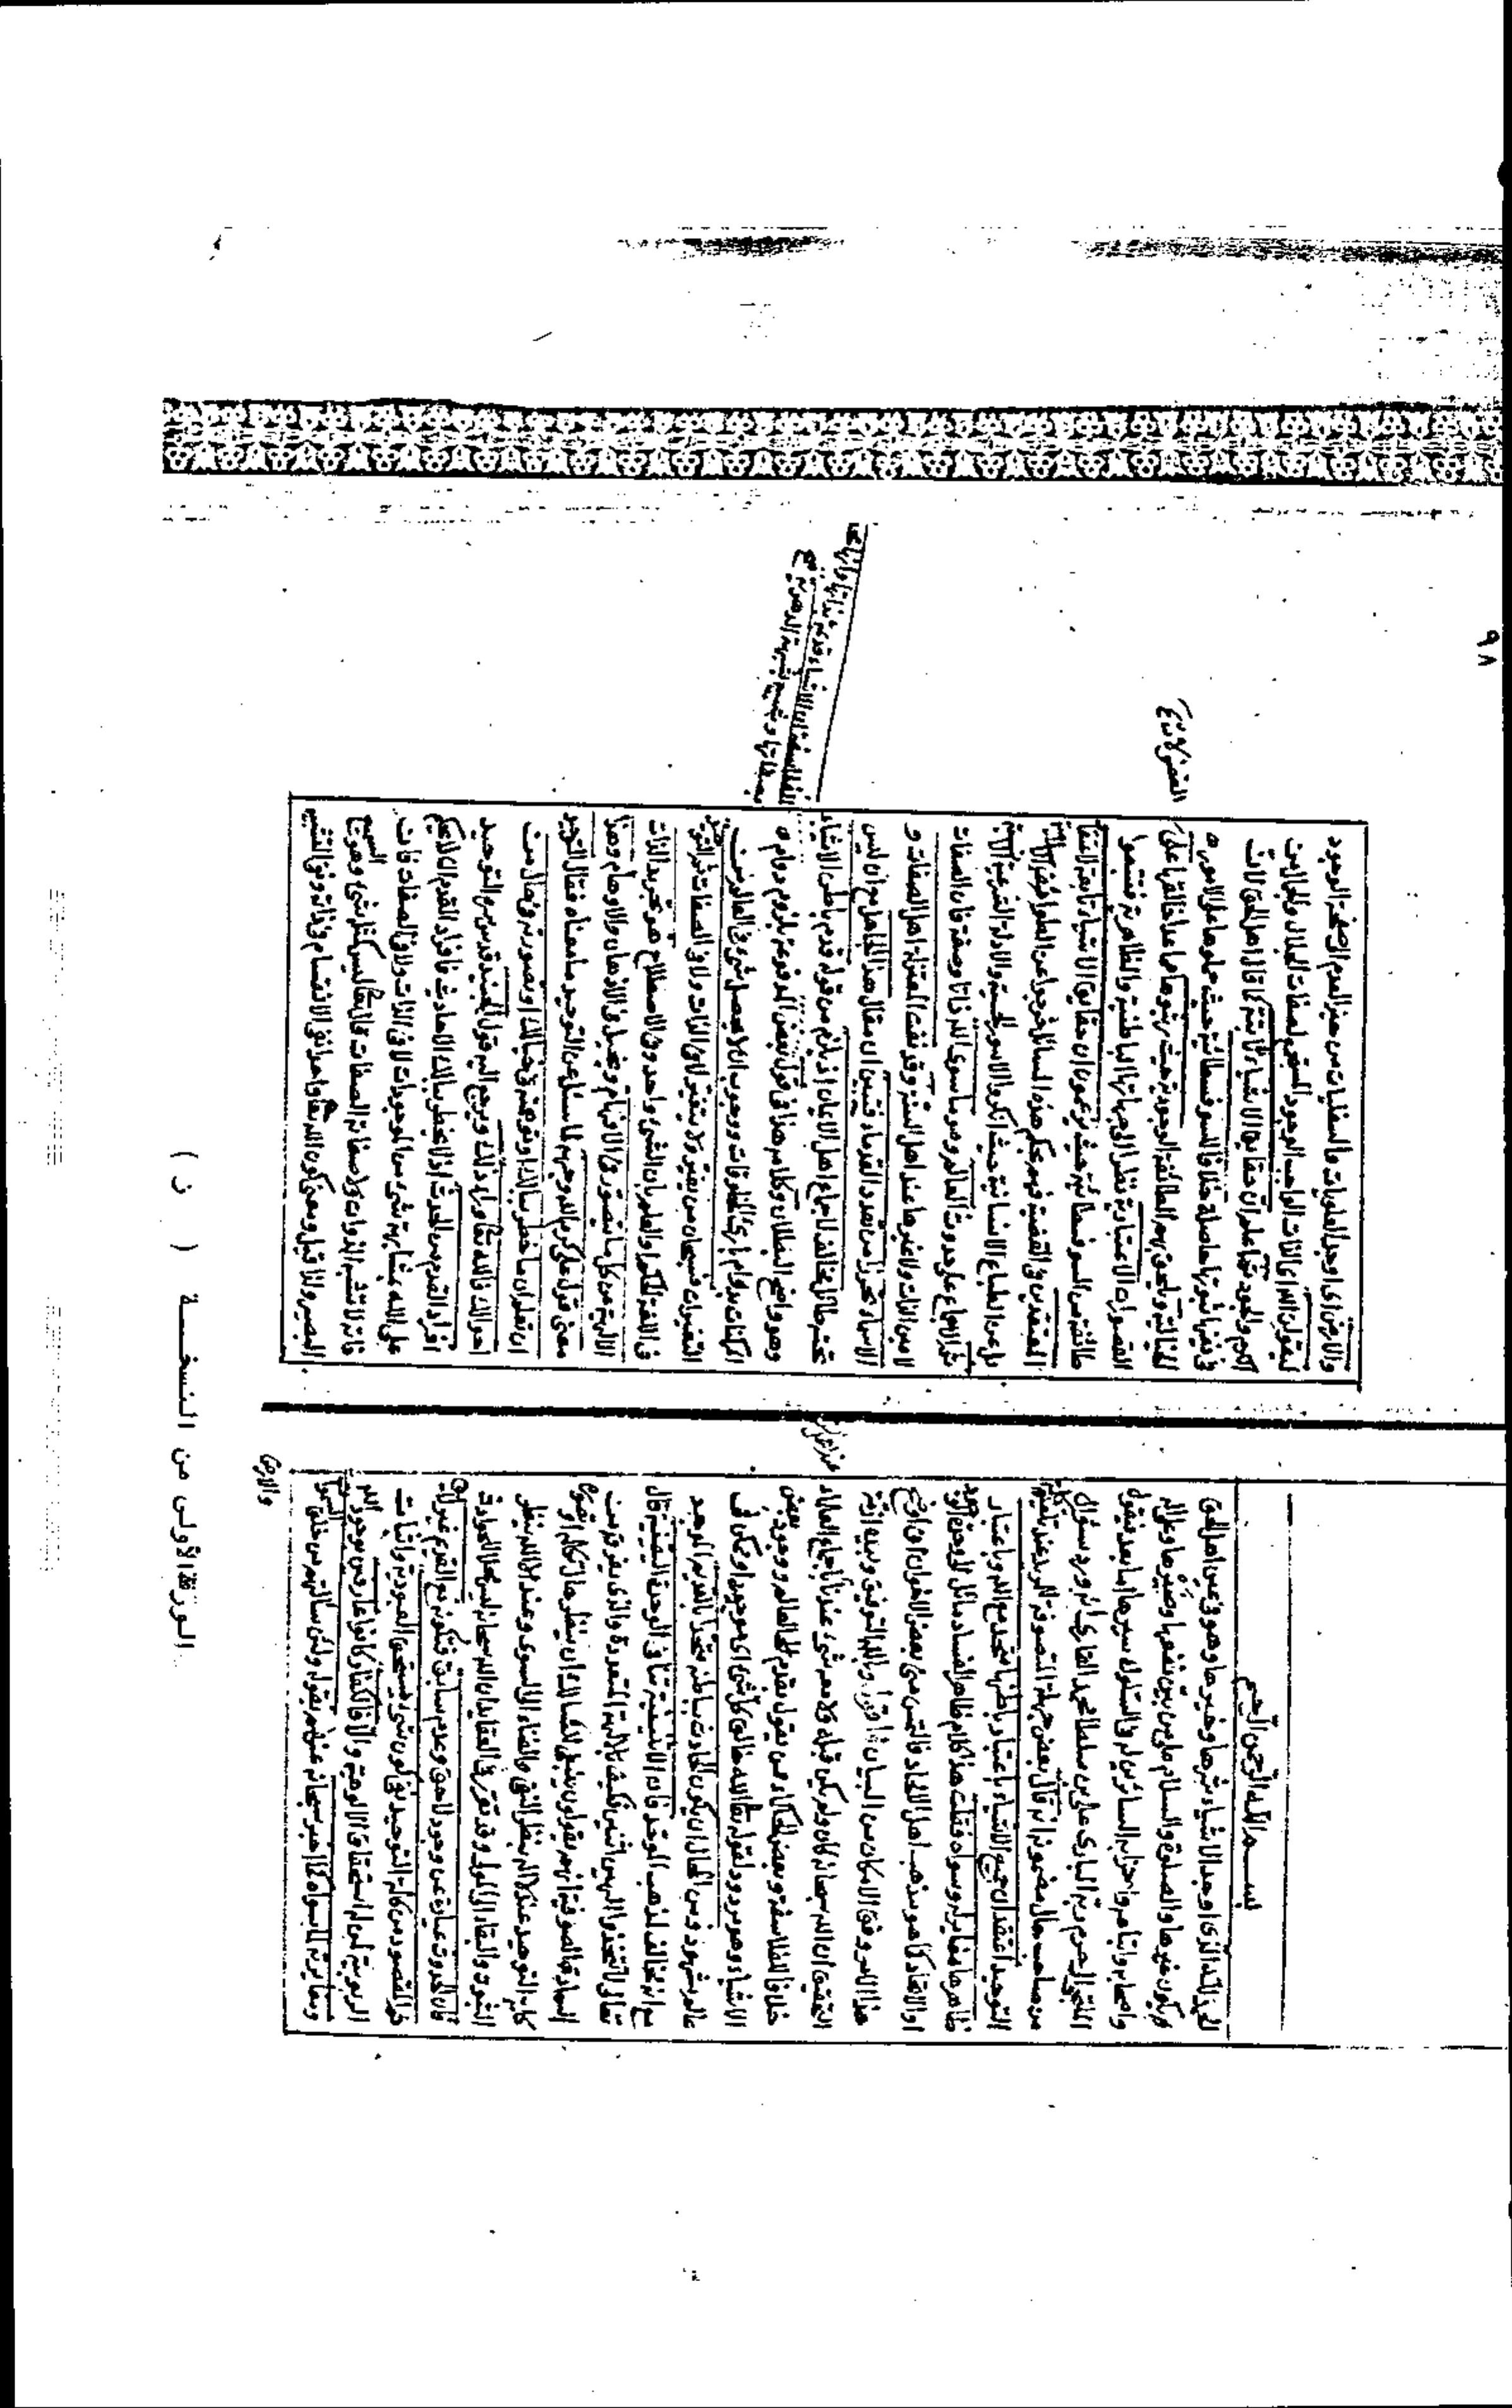 ٩٨
بسم الله الرحمن الرحيم
الحمد لله الذي اوجد الاشياء شرها وخيرها وهو في عين اهل الحق
يكون غيرها والصلاة والسلام على من بين نفعها وضيرها وعلى آله
واصحابه واتباعه واحزابه السائرين في السلوك سيرها اما بعد فيقول
الملتجي الى حرم ربه الباري علي بن سلطان محمد القاري انه ورد سؤال
من صاحب حال مضمونه انه قال بعض جهلة المتصوفة للمريد عند تلقينه كلمة
التوحيد اعتقد ان جميع الاشياء باعتبار باطنها متحد مع الله وباعتبار
ظاهرها مغاير له وسواه فقلت هذا كلام ظاهر الفساد مائل الى وحدة الوجود
او الاتحاد كما هو مذهب اهل الالحاد فالتمس مني بعض الاخوان ان اوضح
هذا الامر وفق الامكان من البيان فاقول وبالله التوفيق وبيده ازمة
التحقيق ان الله سبحانه كان ولم يكن قبله ولا معه شيء عندنا باجماع العلماء
خلافا للفلاسفة وبعض الحكماء ممن يقول بقدم العالم ووجود بعض
الاشياء وهو مردود لقوله تعالى الله خالق كل شيء اي موجود او ممكن في
عالم مشهود ومن المحال ان يكون الحادث بباطنه متحدا بالقديم الموجد
مع انه مخالف لمذهب الموحد فان الاثنينية تنافي الوحدة اليقينية قال
تعالى لا تتخذوا الهين اثنين فكيف بالالهة المتعددة والذي يعرف من
السادة الصوفية انهم يقولون ينبغي للسالك ان ينظر حال تكلمه
كلمة التوحيد عند لا اله بنظر النفي والفناء الى السوى وعند الا الله بنظر
الثبوت والبقاء الى المولى وقد تقرر في العقايد ان الله سبحانه ليس محلا للحوادث
فان الحدوث عبارة عن وجود لاحق وعدم سابق فتكونه مع القديم غير لائق
ثم المقصود من كلمة التوحيد نفي كون شيء يستحق العبودية واثبات
الربوبية لمن له استحقاق الالوهية والا فالكفار كانوا عارفين بوجود الله
ومغايرته لما سواه كما اخبر سبحانه عنهم بقوله ولئن سألتهم من خلق السموات
والارض
والارض اي اوجد العلويات والسفليات من حيز العدم الى صفحة الوجود
ليقولن الله اي الذات الواجب الوجود المستحق لصفات الجلال والجمال من
الكرم والجود ثم اعلم ان حقايق الاشياء ثابتة كما قال اهل الحق
في نفسها ثبوتها حاصلة خلافا للسوفسطائية حيث حملوها على الامور
الخيالية ويلحق بهم الطائفة الوجودية حيث يتوهمونها
التصورات الاعتبارية نظرا لوجهاتها الباطنية والظاهرية فتبعوا
طائفة من السوفسطائية حيث يزعمون ان حقايق الاشياء تابعة
المعتقدين في القضية فهم بحكم هذه المسائل خرجوا عن الطوائف الاسلامية
بل عن الطباع الانسانية حيث انكروا الامور الحسية والادلة الشرعية
ثم الاجماع على حدوث العالم وهو ما سوى الله ذاتا وصفة فان الصفات
لا عين الذات ولا غيرها عند اهل السنة وقد نفت المعتزلة اصل الصفات و
الاسماء تحرزا من تعدد القدماء فتبين ان مقال هذا الجاهل مع انه ليس
تحته طائل مخالف لاجماع اهل الاعيان اذ يلزم من قوله قدم باطن الاشياء
وهو واضح البطلان وكلامه هذا في قول بعض المدفوعة بلزوم دوام
الممكنات بدوام باري المخلوقات ووجوب ان لا يحصل شيء في العالم من
التغيرات فسبحان من يغير ولا يتغير لا في الذات ولا في الصفات ثم التوحيد
في اللغة الحكم والعلم بان الشيء واحد وفي الاصطلاح هو تجريد الذات
الالهية عن كل ما يتصور في الافهام ويخيل في الاذهان والاوهام وهذا
معنى قول علي كرم الله وجهه لما سئل عن التوحيد ما معناه فقال التوحيد
ان تعلم ان ما خطر ببالك او توهمته في خيالك او تصورته في حال من
احوالك فالله تعالى وراء ذلك ويرجع اليه قول الجنيد قدس سره التوحيد
افراد القدم من الحدث اذ لا يخطر ببالك الا حادث فافراد القدم ان لا يحكم
على الله بمشابهة شيء من الموجودات لا في الذات ولا في الصفات فان ذاته
لا تشبه الذوات ولا صفاته الصفات قال تعالى ليس كمثله شيء وهو السميع
البصير ولذا قيل ومعنى كون الله تعالى واحدا نفي الانقسام في ذاته ونفي التشبيه
الورقة الأولى من النسخة ( ز )